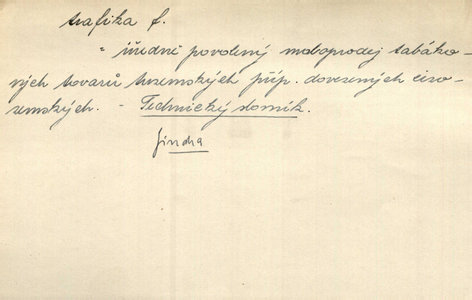 trafika f.
" úředně povolený maloprodej tabáko-
vých tovarů tuzemských příp. dovezených cizo-
zemských. - Technický slovník.
Jindra